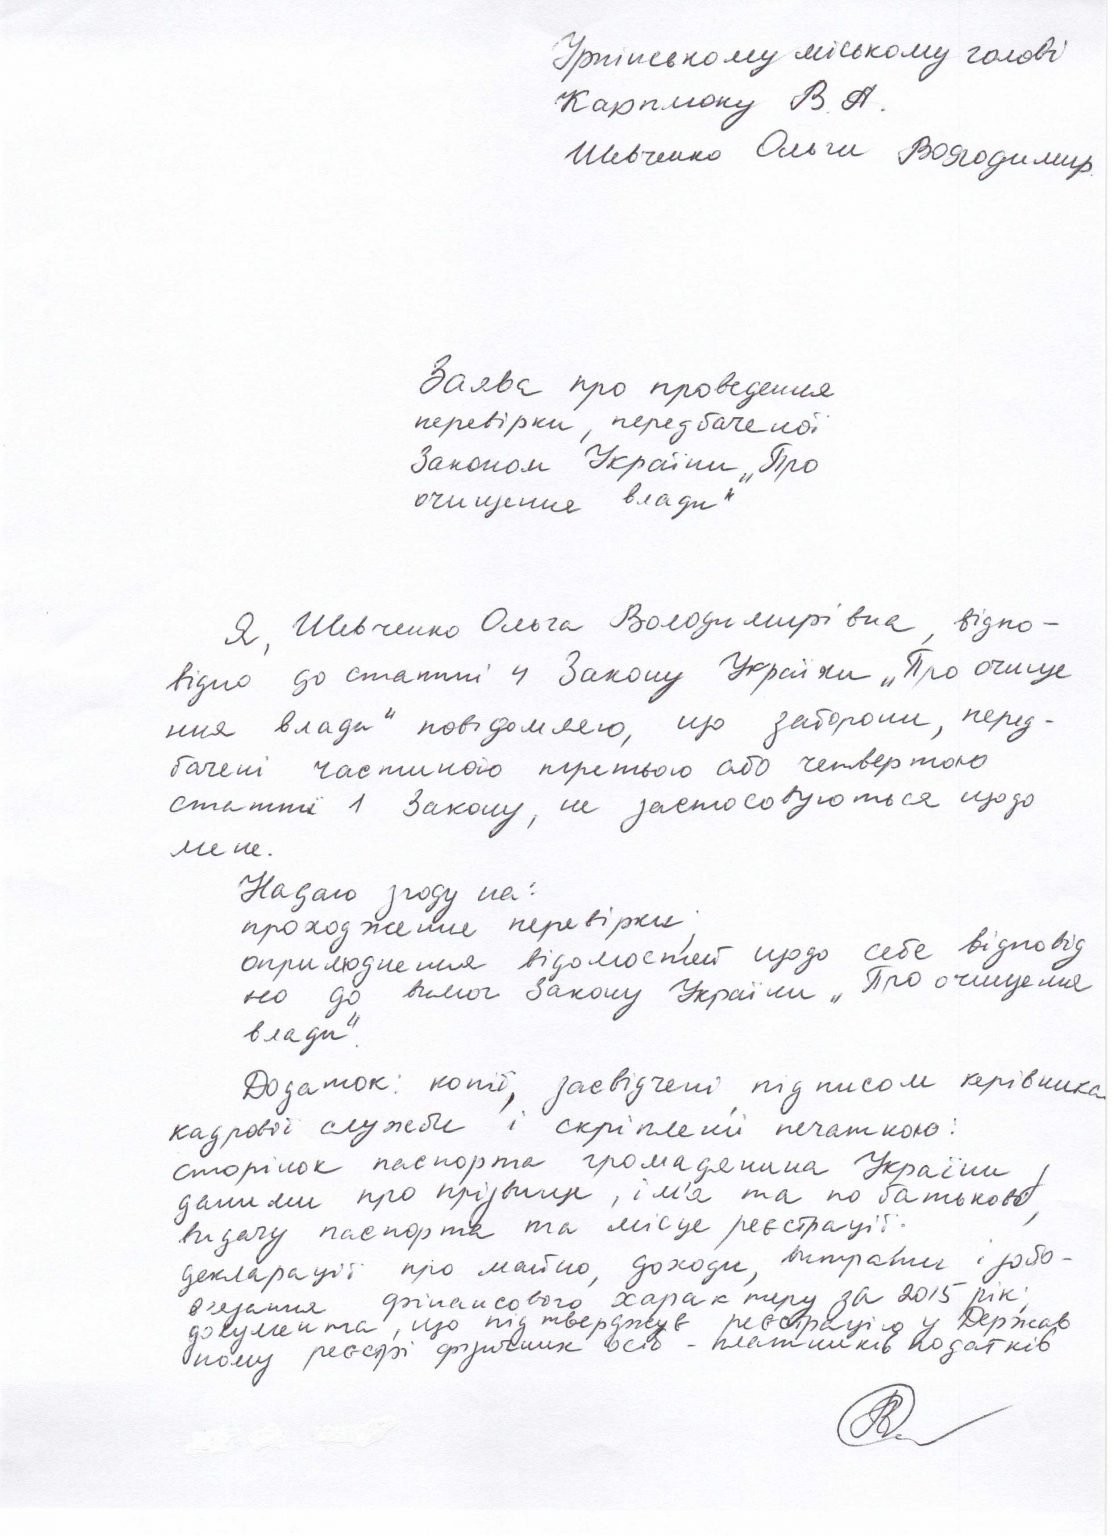 Ірпінському міському голові
Карплюку В.А.
Шевченко Ольги Володимир.
Заява про проведення
перевірки, передбаченої
Законом України „Про
очищення влади"
Я, Шевченко Ольга Володимирівна, відпо-
відно до статті 4 Закону України „Про очище
ння влади" повідомляю, що заборони, перед-
бачені частиною третьою або четвертою
статті 1 Закону, не застосовуються щодо
мене.
Надаю згоду на:
проходження перевірки;
оприлюднення відомостей щодо себе відповід
но до вимог Закону України „Про очищення
влади".
Додаток: копії, засвідчені підписом керівника
кадрової служби і скріплені печаткою:
сторінок паспорта громадянина України з
даними про прізвище, ім'я та по батькові,
видачу паспорта та місце реєстрації.
декларації про майно, доходи, витрати і зобо-
в'язання фінансового характеру за 2015 рік;
документа, що підтверджує реєстрацію у Держав
ному реєстрі фізичних осіб - платників податків